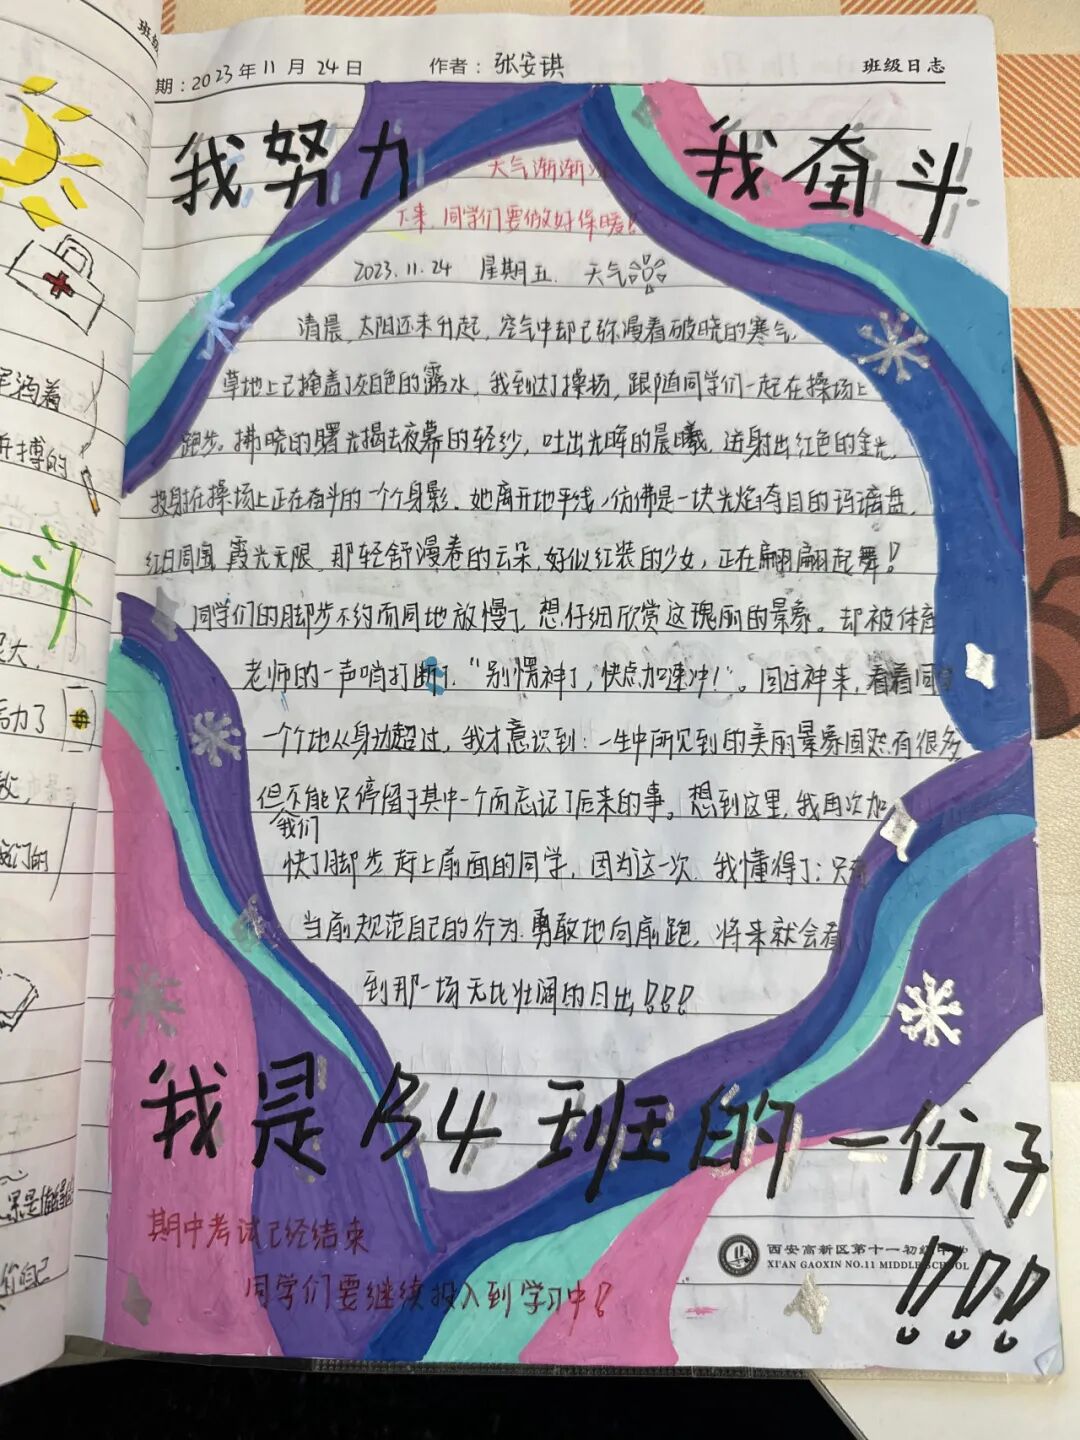 期：2023年11月24日 作者：张安琪 班级日志
我努力 我奋斗
天气渐渐冷
下来，同学们要做好保暖！
2023.11.24 星期五. 天气
清晨，太阳还未升起，空气中却已弥漫着破晓的寒气，
草地上已掩盖了灰白色的露水，我到达了操场，跟随同学们一起在操场上
跑步。拂晓的曙光揭去夜幕的轻纱，吐出光晖的晨曦，迸射出红色的金光，
投射在操场上正在奋斗的一个个身影．她离开地平线，仿佛是一块光焰夺目的玛瑙盘，
红日周围，霞光无限，那轻舒漫卷的云朵，好似红装的少女，正在翩翩起舞！
同学们的脚步不约而同地放慢了，想仔细欣赏这瑰丽的景象。却被体育
老师的一声哨打断了．“别愣神了，快点加速冲！”。回过神来，看着同
一个个地从身边超过，我才意识到：一生中所见到的美丽景象固然有很多，
但不能只停留于其中一个而忘记了后来的事。想到这里，我再次加
我们
快了脚步赶上前面的同学，因为这一次，我懂得了：只有
当前规范自己的行为，勇敢地向前跑，将来就会看
到那一场无比壮阔的日出！！！
我是B4班的一份子
！！！
期中考试已经结束
同学们要继续投入到学习中！
西安高新区第十一初级中学
XI'AN GAOXIN NO.11 MIDDLE SCHOOL
班级
尾涵着
拼搏的
斗